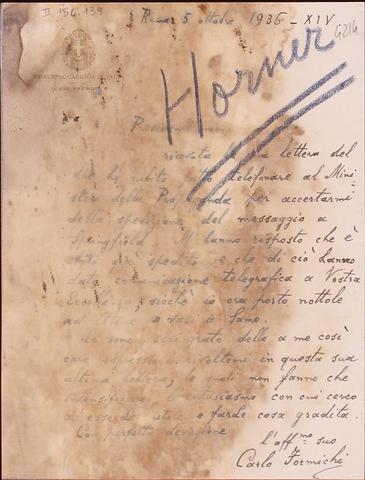 II 156.139
Roma 5 ottobre 1936 - XIV
G214
Horner
REALE ACCADEMIA D'ITALIA
ricevuta la sua lettera del
due ho subito fatto telefonare al Mini=
stero della Propaganda per accertarmi
della spedizione del messaggio a
Springfield. Mi hanno risposto che è
stato già spedito e che di ciò hanno
data comunicazione telegrafica a Vostra
Eccellenza, sicchè io ora porto nottole
ad Atene e vasi a Samo.
Le sono assai grato delle a me così
care espressioni rivoltemi in questa sua
ultima lettera, le quali non fanno che
intensificare l'entusiasmo con cui cerco
di esserle utile e farle cosa gradita.
Con perfetta devozione
l'aff.mo suo
Carlo Formichi